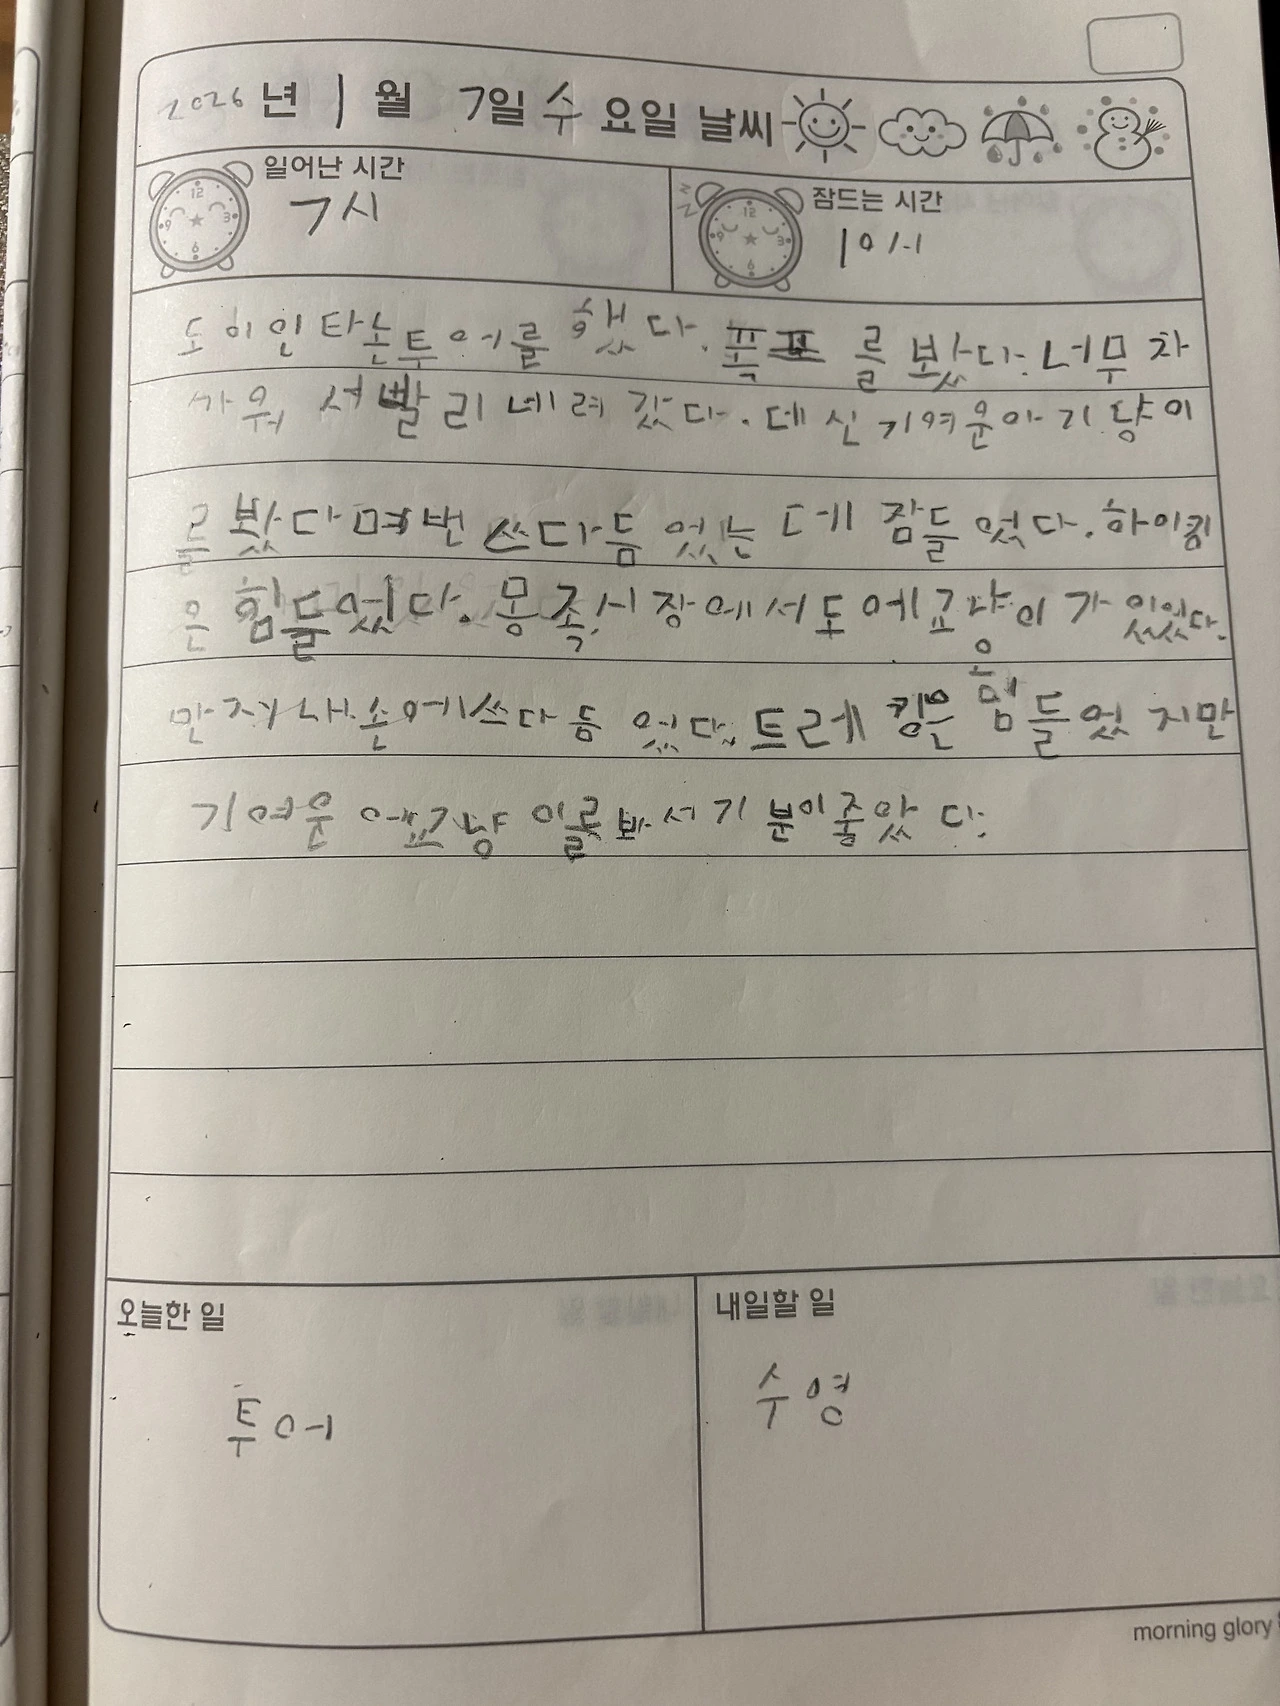 2026 년 1 월 7일 수 요일 날씨
일어난 시간
7시
잠드는 시간
10시
도이인타논투어를 했다. 폭포를 봤다. 너무 차
가워서빨리네려갔다. 데신기여운아기냥이
를 봤다 며번 쓰다듬었는데 잠들었다. 하이킹
은 힘들었다. 몽족시장에서도에교냥이가 있었다.
만자내손에쓰다듬었다. 트레킹은힘들었지만
기여운에교냥이를봐서기분이좋았다.
오늘한 일
투어
내일할 일
수영
morning glory